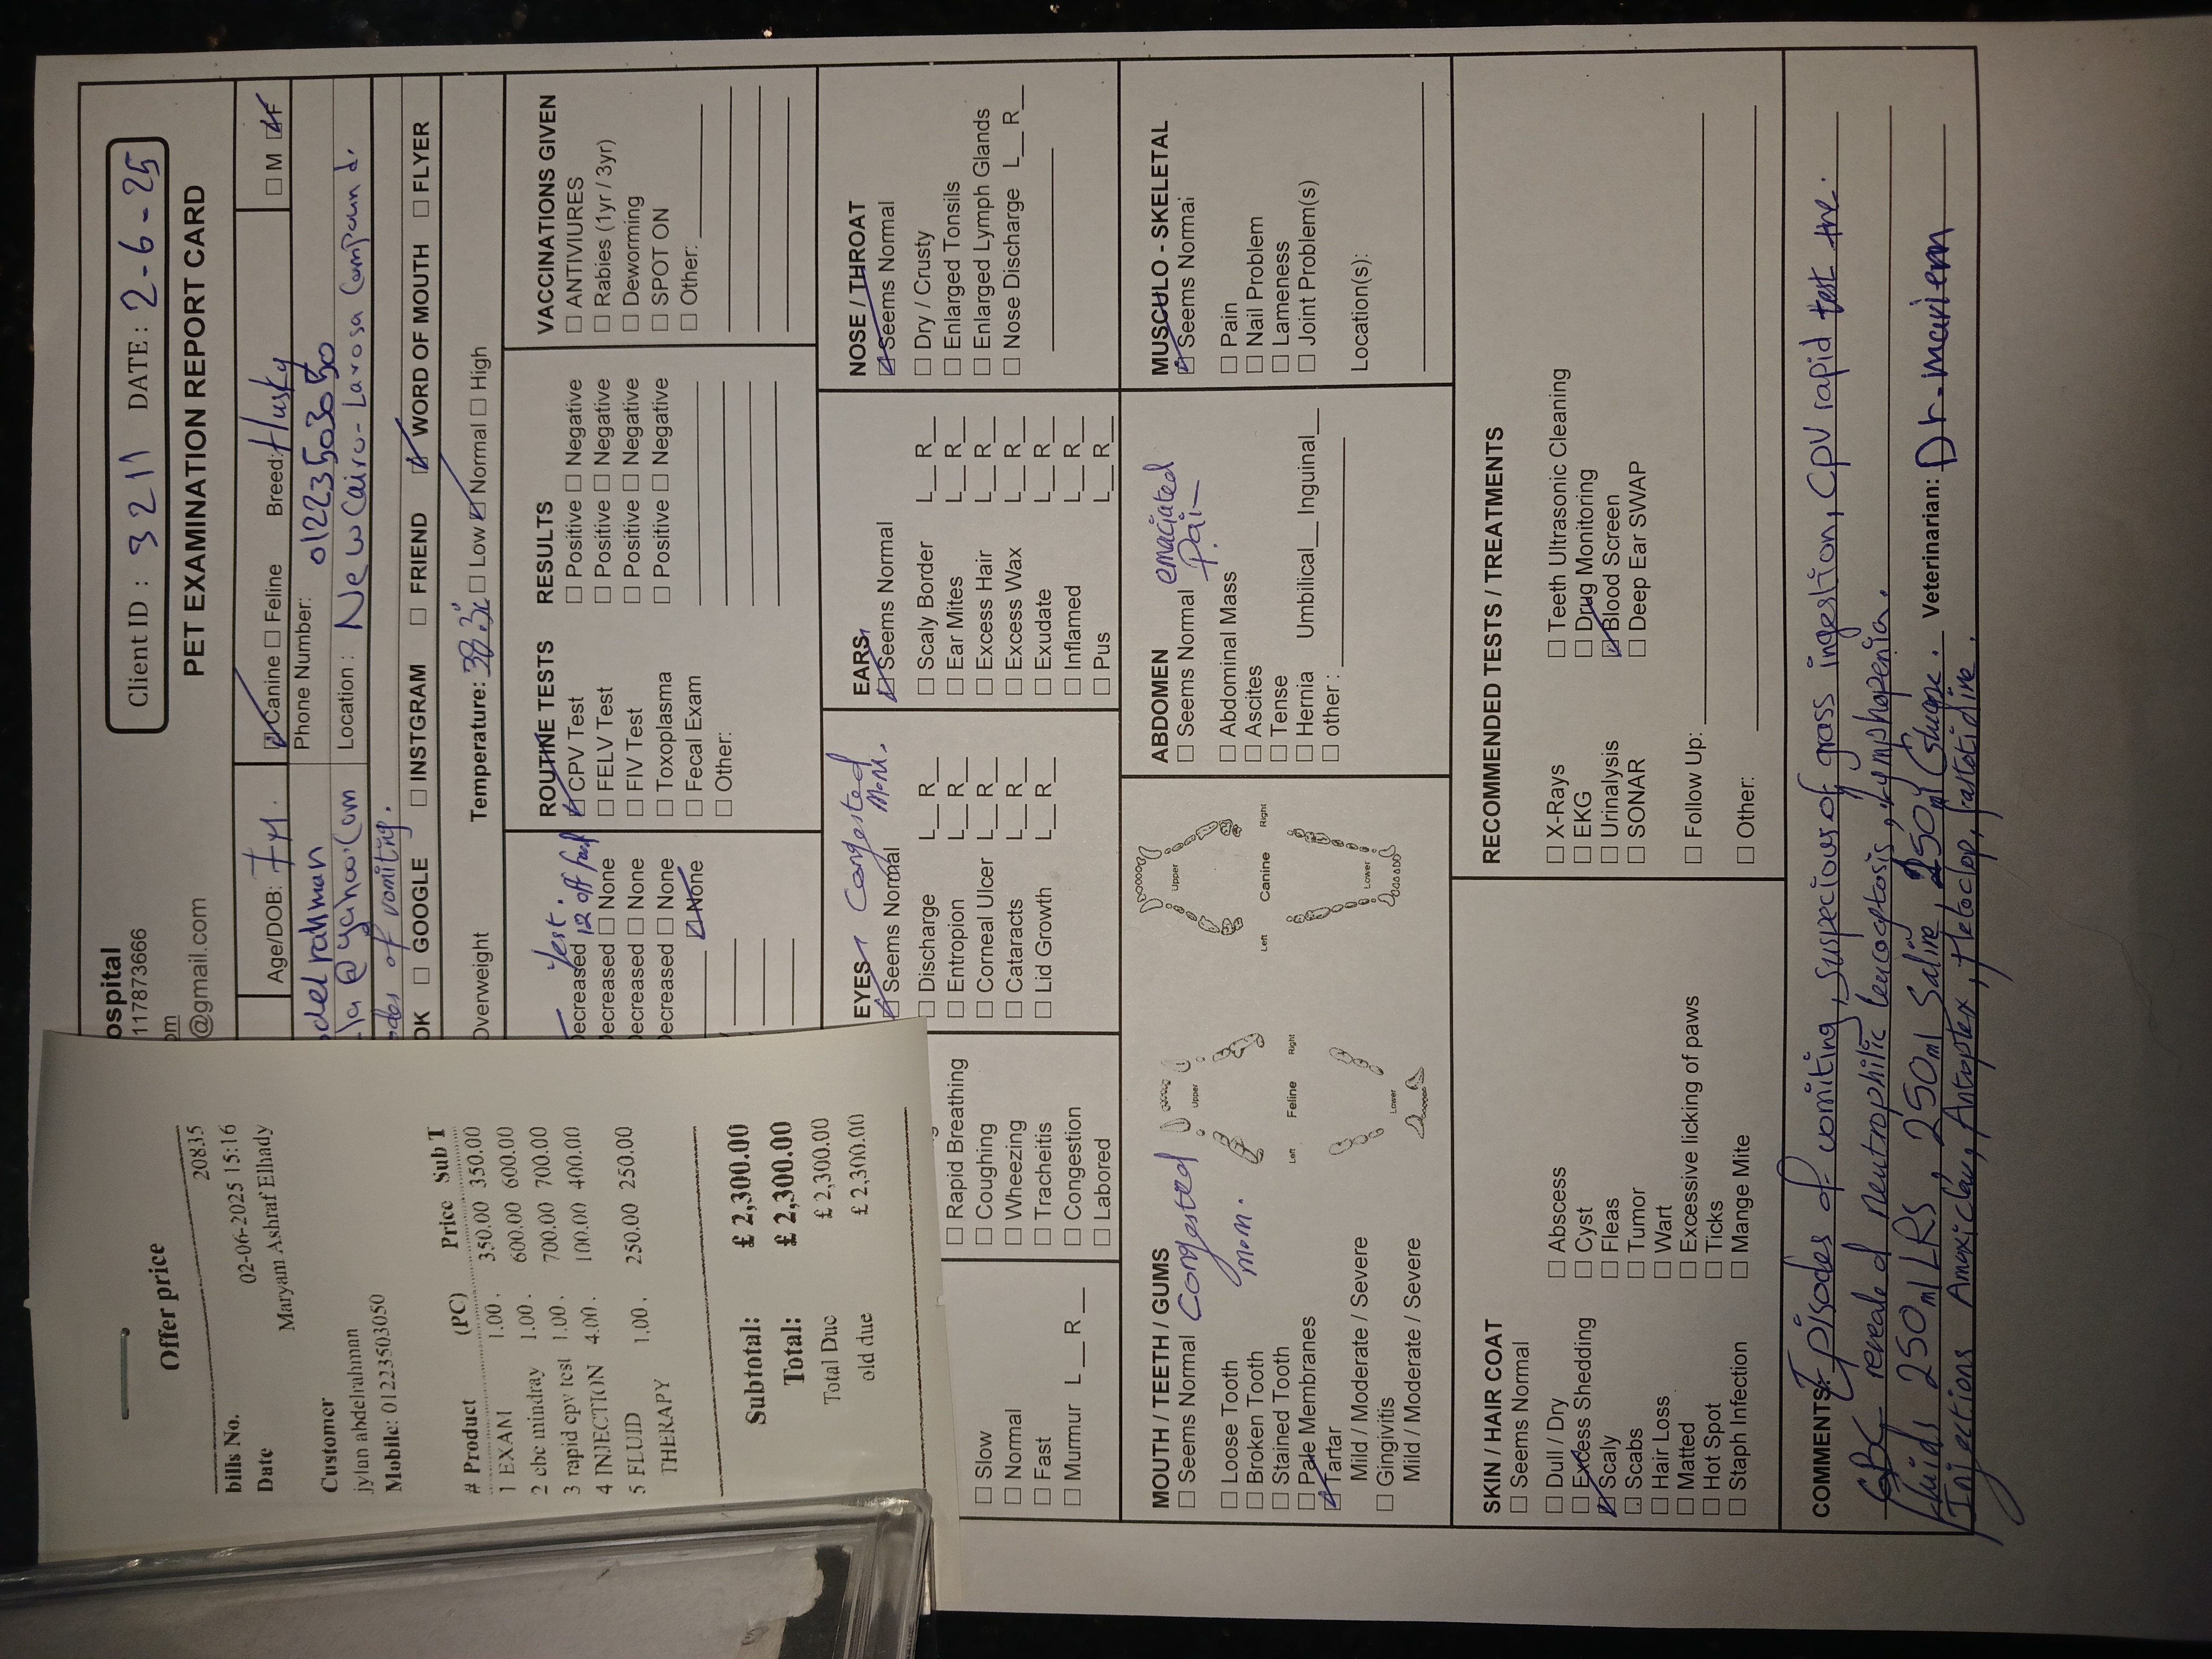 Offer price
bills No. 20835
Date 02-06-2025 15:16
Maryam Ashraf Elhady
Customer
jylan abdelrahman
Mobile: 01223503050
# Product (PC) Price Sub T
1 EXAM 1.00 . 350.00 350.00
2 cbc mindray 1.00 . 600.00 600.00
3 rapid cpv test 1.00 . 700.00 700.00
4 INJECTION 4.00 . 100.00 400.00
5 FLUID THERAPY 1.00 . 250.00 250.00
Subtotal: £ 2,300.00
Total: £ 2,300.00
Total Due £ 2,300.00
old due £ 2,300.00
ospital
117873666
om
@gmail.com
Client ID : 3211 DATE : 2-6-25
PET EXAMINATION REPORT CARD
Age/DOB: 7M. Canine Feline Breed: Husky M F
delrahman Phone Number: 01223503050
@yahoo.com Location : New Cairo - Larosa Compound.
odes of vomiting.
OK GOOGLE INSTGRAM FRIEND WORD OF MOUTH FLYER
Overweight Temperature: 38.3 Low Normal High
Decreased
Decreased None
Decreased None
Decreased None
None
ROUTINE TESTS RESULTS
CPV Test Positive Negative
FELV Test Positive Negative
FIV Test Positive Negative
Toxoplasma Positive Negative
Fecal Exam
Other:
VACCINATIONS GIVEN
ANTIVIURES
Rabies (1yr / 3yr)
Deworming
SPOT ON
Other:
Slow
Normal
Fast
Murmur L R
Rapid Breathing
Coughing
Wheezing
Tracheitis
Congestion
Labored
EYES Congested
Seems Normal
Discharge L R
Entropion L R
Corneal Ulcer L R
Cataracts L R
Lid Growth L R
EARS
Seems Normal
Scaly Border L R
Ear Mites L R
Excess Hair L R
Excess Wax L R
Exudate L R
Inflamed L R
Pus L R
NOSE / THROAT
Seems Normal
Dry / Crusty
Enlarged Tonsils
Enlarged Lymph Glands
Nose Discharge L R
MOUTH / TEETH / GUMS
Seems Normal Congested
mem.
Loose Tooth
Broken Tooth
Stained Tooth
Pale Membranes
Tartar
Mild / Moderate / Severe
Gingivitis
Mild / Moderate / Severe
Upper
Left Feline Right
Lower
Upper
Left Canine Right
Lower
ABDOMEN
Seems Normal emaciated
Pain
Abdominal Mass
Ascites
Tense
Hernia Umbilical Inguinal
other :
MUSCULO - SKELETAL
Seems Normal
Pain
Nail Problem
Lameness
Joint Problem(s)
Location(s):
SKIN / HAIR COAT
Seems Normal
Dull / Dry
Excess Shedding
Scaly
Scabs
Hair Loss
Matted
Hot Spot
Staph Infection
Abscess
Cyst
Fleas
Tumor
Wart
Excessive licking of paws
Ticks
Mange Mite
RECOMMENDED TESTS / TREATMENTS
X-Rays Teeth Ultrasonic Cleaning
EKG Drug Monitoring
Urinalysis Blood Screen
SONAR Deep Ear SWAP
Follow Up:
Other:
COMMENTS: Episodes of vomiting, suspecious of grass ingestion, CPV rapid test
CBC reveale d neutrophilic leucocytosis, lymphopenia.
fluids 250ml LRs, 250ml Saline, 250ml Glucose. Veterinarian: Dr. mariem
Injections Amoxiclav, Antoptex, Metoclop, fantotidine.